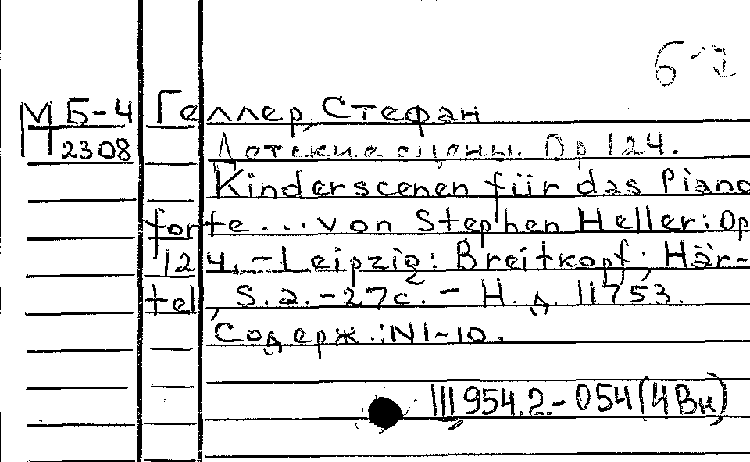 М Б-4 Геллер, Стефан
П 2308 Детские сцены. Op 124.
Kinderscenen für das Piano
forte... von Stephen Heller: Op
124. - Leipzig: Breitkopf. Här-
tel, S. a. - 27 с. - Н. д. 11753.
Содерж.: N1-10.
III 954.2.-054(4Вн)